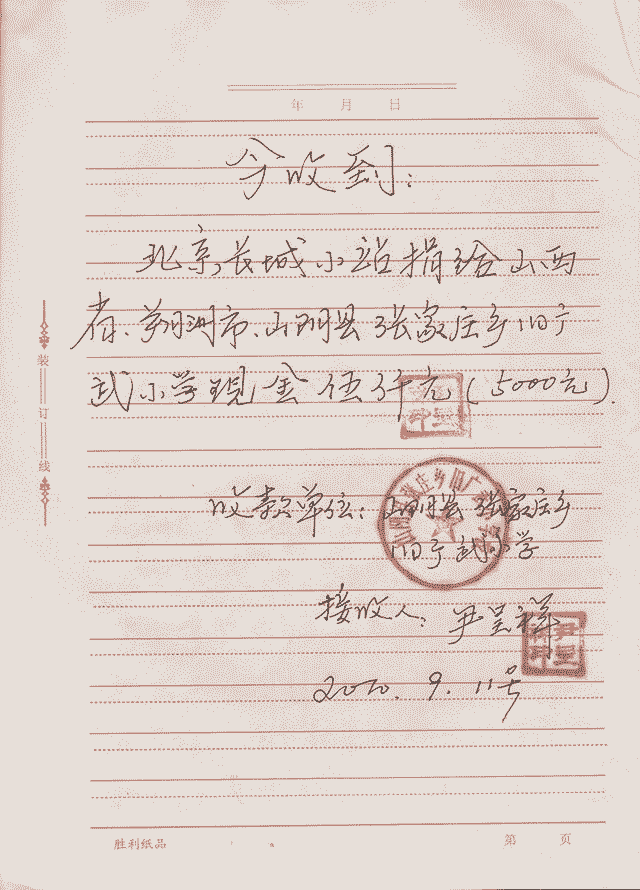 年 月 日
今收到：
北京长城小站捐给山西
省、朔洲市、山阴县张家庄乡旧广
武小学现金伍仟元(5000元).
收款单位：山阴县张家庄乡
旧广武小学
接收人：尹呈祥
尹呈祥印
2010.9.11号
装订线
胜利纸品 第 页